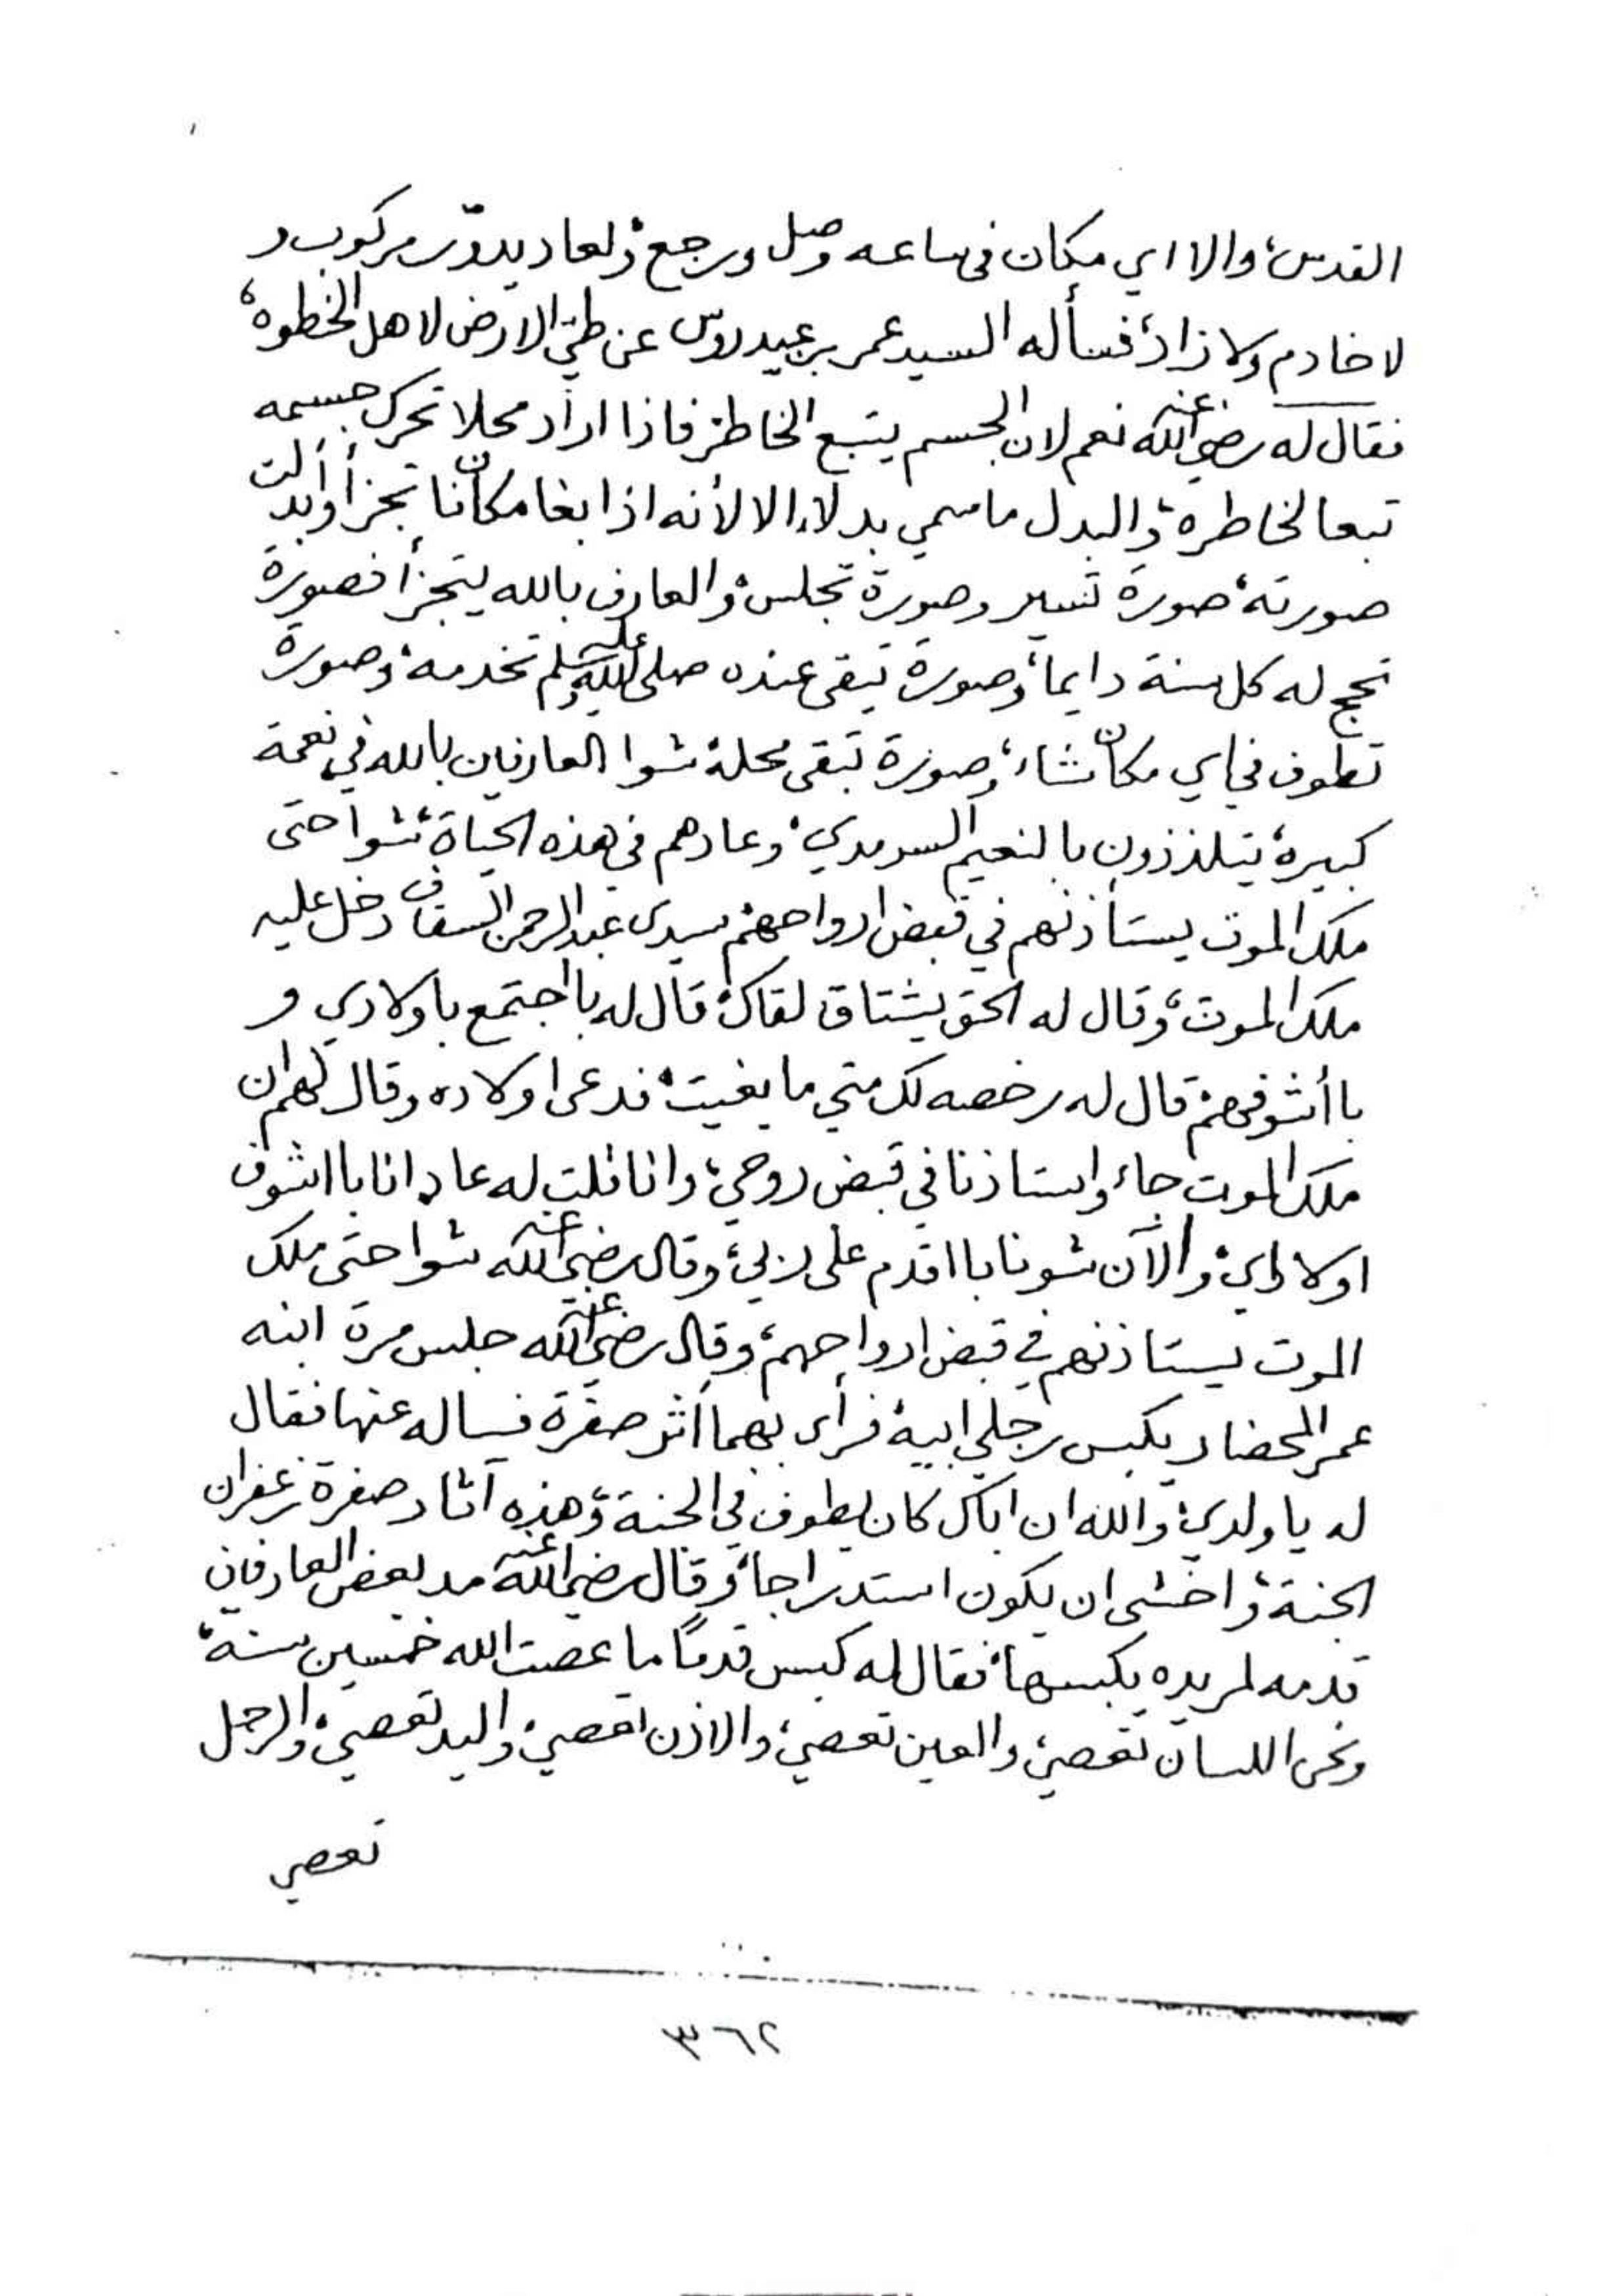 القدس، والا اي مكان في ساعه وصل ورجع، ولعاد يدوّر مركوب و
لا خادم ولا زاد، فسأله السيد عمر بن عيدروس عن طيّ الارض لاهل الخطوه،
فقال له رضي الله عنه نعم لان الجسم يتبع الخاطر، فاذا اراد محلا تحرك جسمه
تبعا لخاطره، والبدل ما سمي بدلا، الا لأنه اذا بغا مكانا تجزأ وأبدلت
صورته، صورة تسير وصورة تجلس، والعارف بالله يتجزأ فصورة
تحج له كل سنة دايما، وصورة تبقى عنده صلى الله عليه وسلم تخدمه، وصورة
تطوف في اي مكان شاء، وصورة تبقى محله، شوا العارفين بالله في نعمة
كبيرة، يتلذذون بالنعيم السرمدي، وعادهم في هذه الحياة، شوا حتى
ملك الموت يستأذنهم في قبض ارواحهم، سيدي عبد الرحمن السقاف دخل عليه
ملك الموت، وقال له الحق يشتاق لقاك، قال له با اجتمع باولادي و
با أشوفهم، قال له رخصه لك متى ما بغيت، فدعى اولاده وقال لهم ان
ملك الموت جاء واستاذنا في قبض روحي، وانا قلت له عاد انا با اشوف
اولادي، والآن شونا با اقدم على ربي، وقال رضي الله عنه شوا حتى ملك
الموت يستاذنهم في قبض ارواحهم، وقال رضي الله عنه جلس مرة ابنه
عمر المحضار يكبس رجلي ابيه، فرأى بهما أثر صفرة فساله عنها فقال
له يا ولدي، والله ان اباك كان يطوف في الجنة، وهذه آثار صفرة زعفران
الجنة، واخشى ان يكون استدراجا، وقال رضي الله عنه مد بعض العارفين
قدمه لمريده يكبسها، فقال له كبس قدمًا ما عصت الله خمسين سنة،
ونحن اللسان تعصي، والعين تعصي، والاذن تعصي، واليد تعصي، والرجل
تعصي
٣٦٢